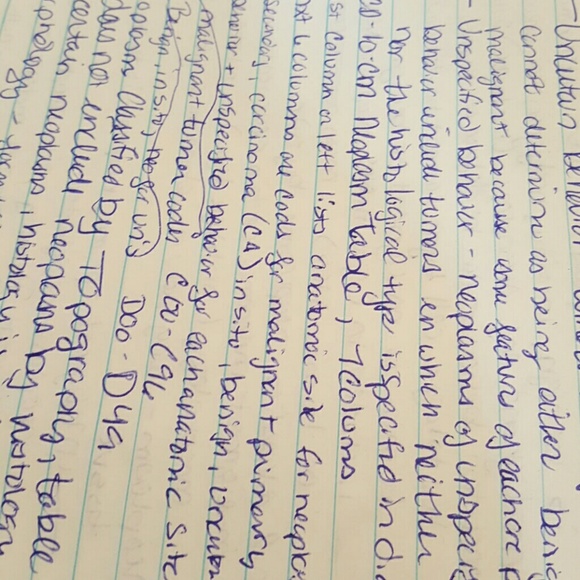 Uncertain behavior
cannot determine as being either benig
malignant because some feature of each are p
- Unspecified behavior - neoplasms of unspecifi
behavior include tumors in which neither
nor the histological type is specified in di
CD-10-CM Neoplasm table, 7 columns
st column at left lists anatomic site for neopla
next 6 columns are codes for malignant + primary
secondary, carcinoma (CA) in situ, benign, uncertain
behavior + unspecified behavior for each anatomic site
malignant tumor codes C00-C96
Benign, in situ, D00-D49
neoplasms classified by Topography, table
does not include neoplasms by histology
certain neoplasms, histology is